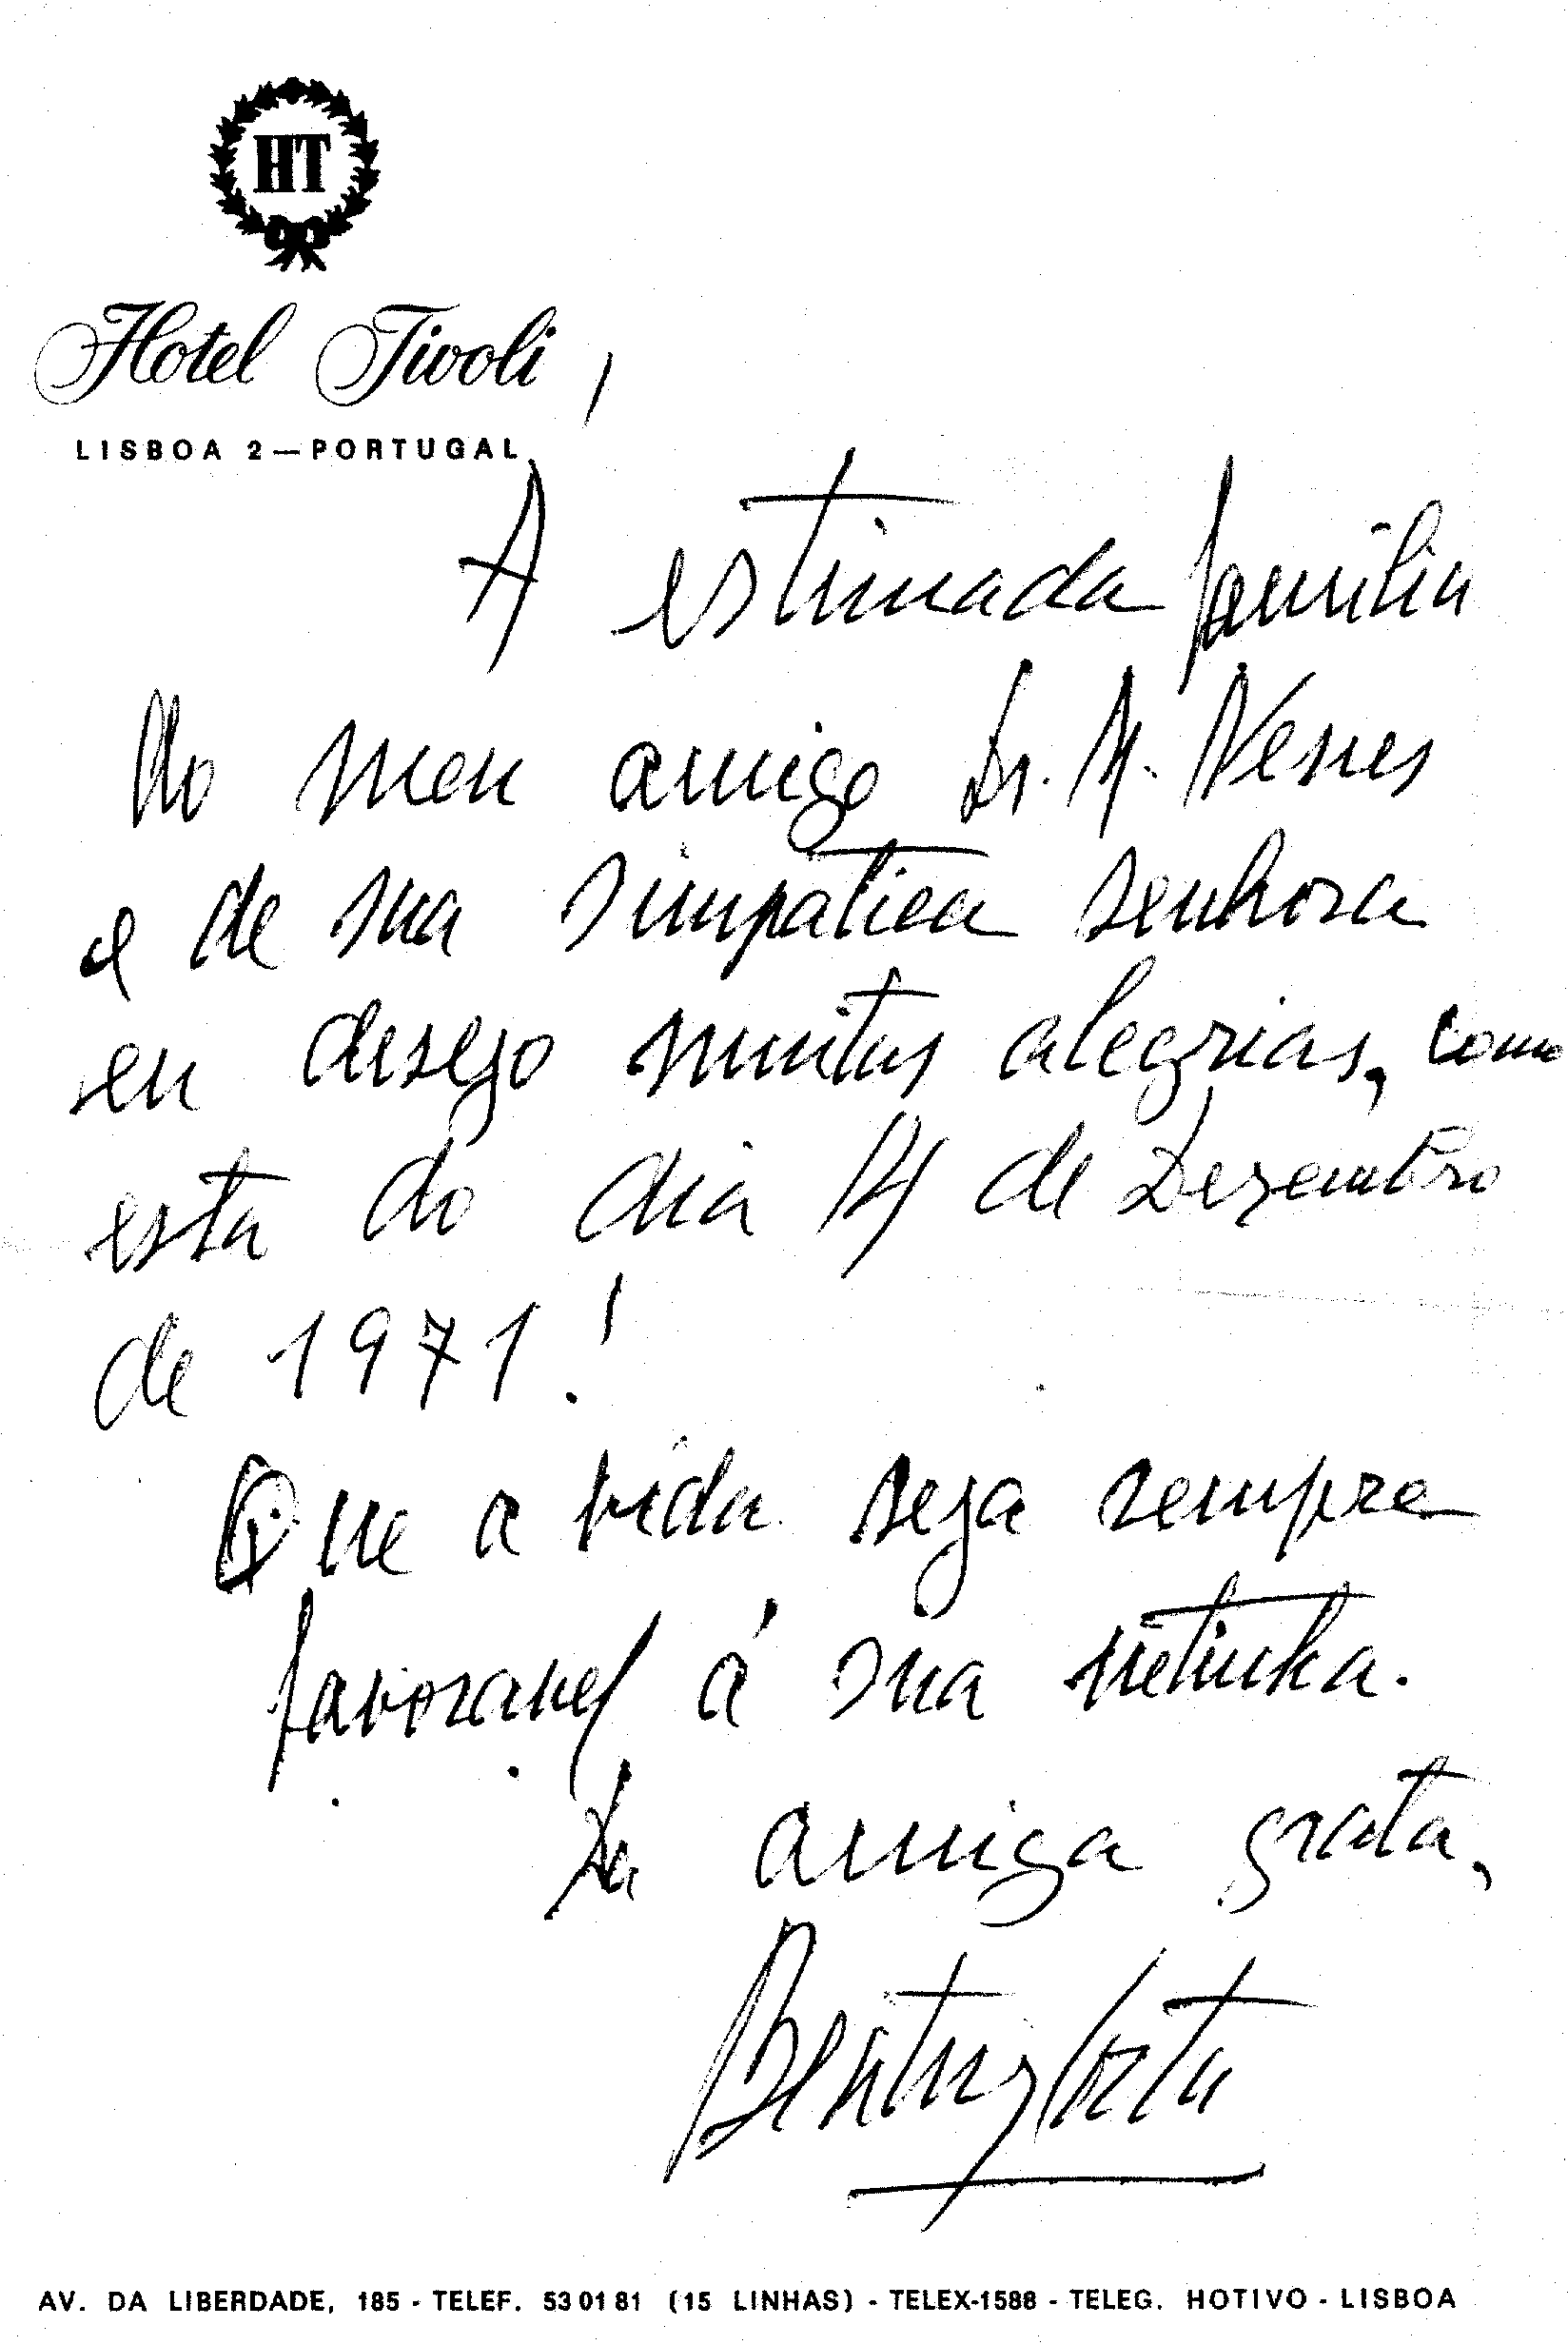 HT
Hotel Tivoli
LISBOA 2—PORTUGAL
Á estimada família
do meu amigo Dr. M. Neves
e de sua simpática senhora
eu desejo muitas alegrias, como
esta do dia 14 de Dezembro
de 1971!
Que a vida seja sempre
favoravel á sua netinha.
Da amiga grata,
Beatriz Costa
AV. DA LIBERDADE, 185 - TELEF. 53 01 81 (15 LINHAS) - TELEX-1588 - TELEG. HOTIVO - LISBOA